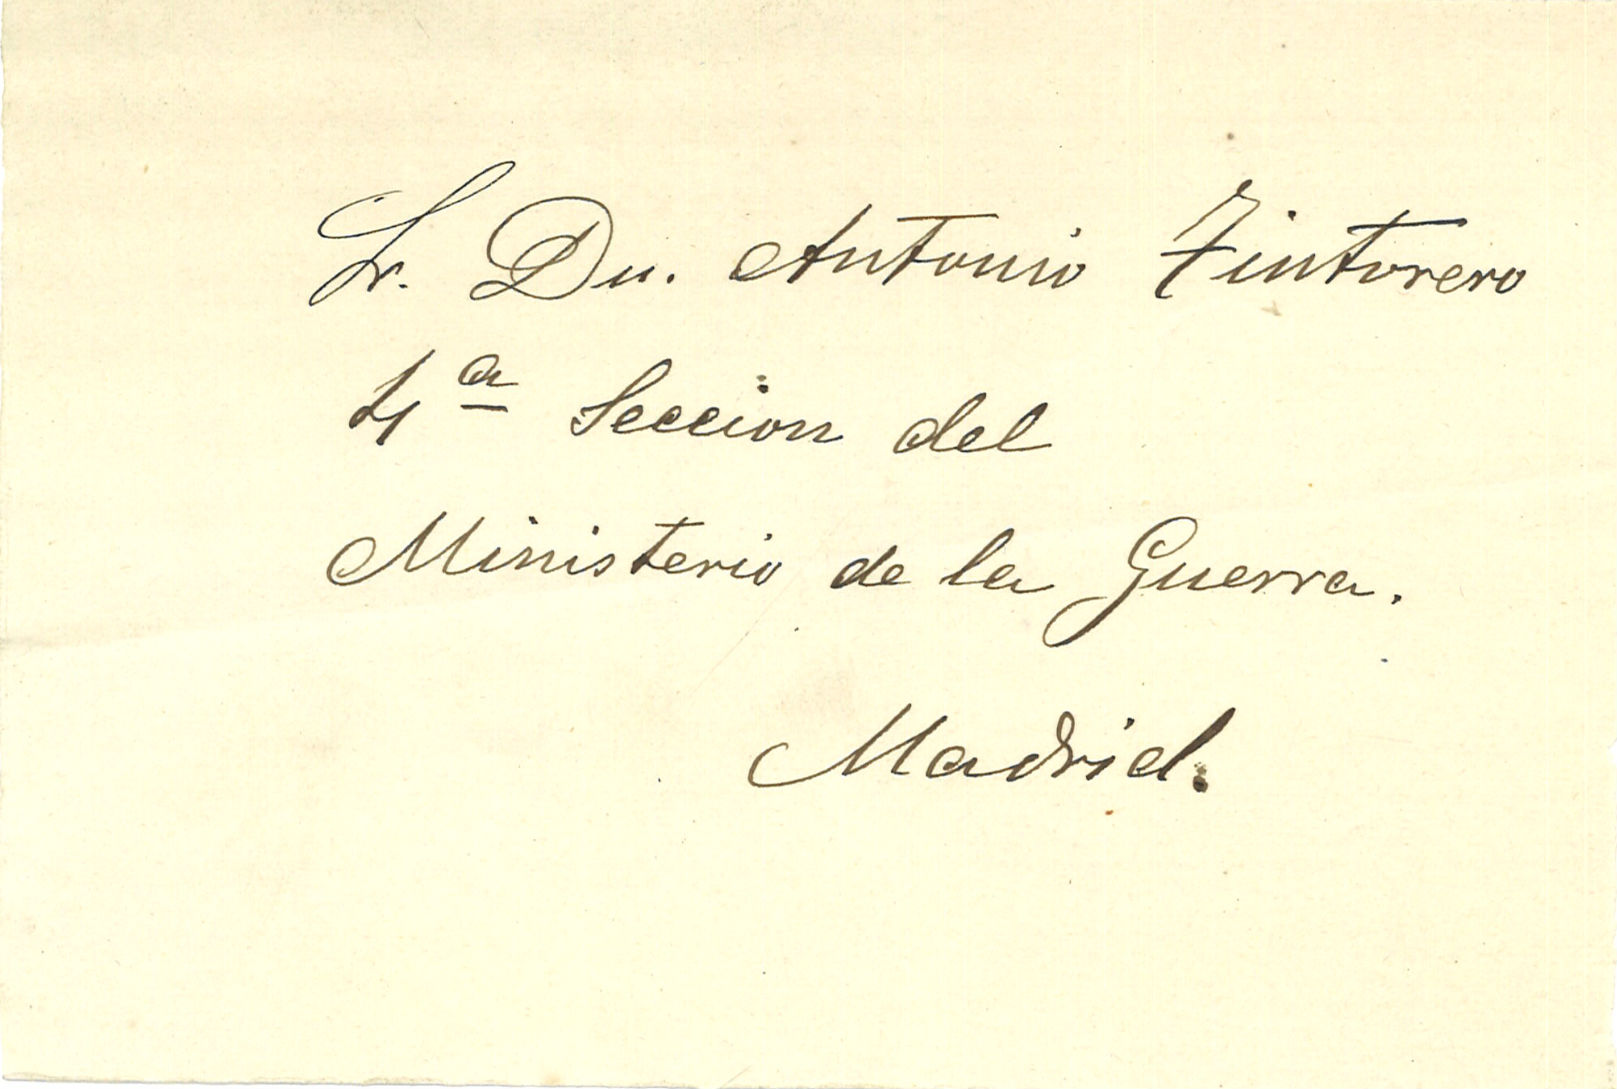 Sr. Dn. Antonio Tintorero
4ª Seccion del
Ministerio de la Guerra.
Madrid.